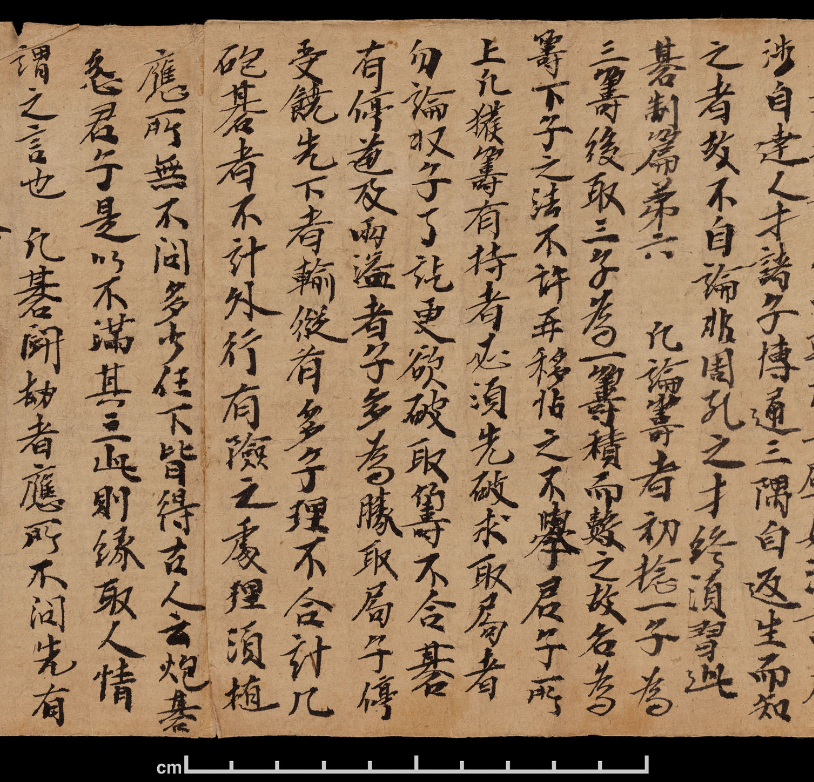 涉自達人才諸子博通三隅自返生而知
之者故不自論非周孔之才終須習此
碁制篇第六 凡論籌者初捻一子為
三籌後取三子為一籌積而數之故名為
籌下子之法不許再移怗之不舉君子所
上凡獲籌有持者必須先破求取局者
勿論收子了訖更欲破取籌不合碁
有停道及兩溢者子多為勝取局子停
受饒先下者輸縱有多子理不合計凡
砲碁者不計外行有險之處理須植
應所無不問多少任下皆得古人云炮碁
忿君子是以不滿其三此則緣取人情
謂之言也 凡碁鬪劫者應所不問先有